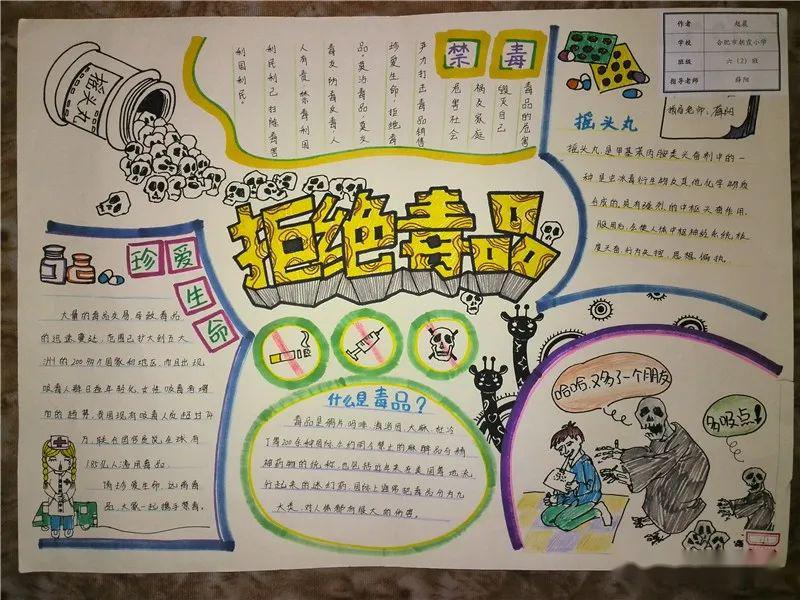 摇头丸
禁毒
毒品的危害
毁灭自己
祸及家庭
危害社会
严力打击毒品销售
珍爱生命,拒绝毒
品,莫沾毒品,莫交
毒友,纳毒友毒,人
人有责,禁毒利国
利民利己,扫除毒害
利国利民。
作者 赵晨
学校 合肥市朝霞小学
班级 六(2)班
指导老师 薛阳
指导老师:薛阳
摇头丸
摇头丸,是甲基苯丙胺类兴奋剂中的一
种,是由冰毒衍生物及其他化学物质
合成的,具有强烈的中枢兴奋作用,
服用后,会使人体中枢神经系统极
度兴奋,行为失控,思想偏执。
拒绝毒品
珍爱生命
大量的毒品交易,导致毒品
的迅速蔓延,范围已扩大到五大
洲的200多个国家和地区,而且出现
吸毒人群日趋年轻化,女性吸毒有增
加的趋势,我国现有吸毒人员超过74
万,
1.85亿人滥用毒品。
请珍爱生命,远离毒
品,大家一起携手禁毒。
什么是毒品?
毒品是鸦片,吗啡,海洛因,大麻,杜冷
丁等200多种国际公约明令禁止的麻醉品与精
神药物的统称,也包括近些年在美国等地流
行起来的迷幻药,国际上通常把毒品分为九
大类,对人体都有很大的伤害。
哈哈,又多了一个朋友
多吸点!